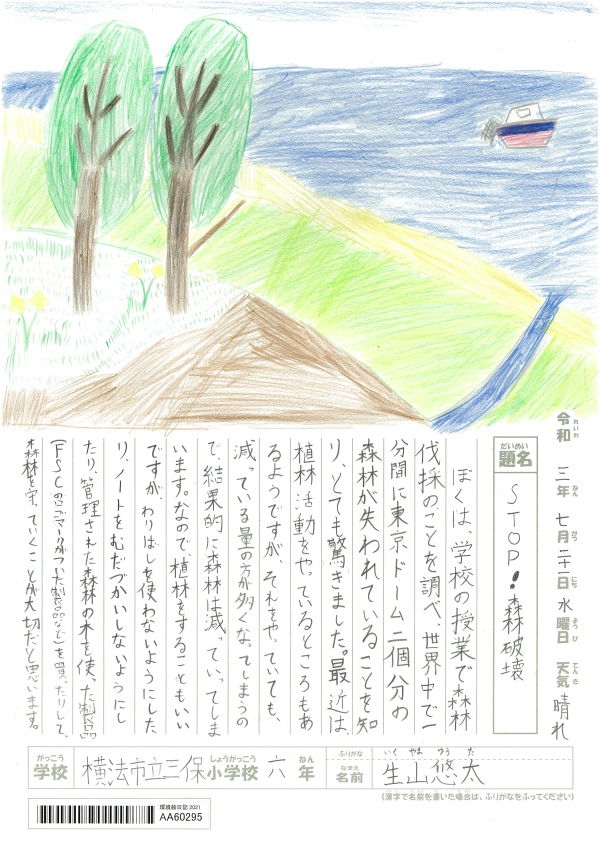 令和三年七月二十一日水曜日 天気晴れ
れいわ ねん がつ にち ようび てんき
だいめい
題名 STOP!森破壊
ぼくは、学校の授業で森林
伐採のことを調べ、世界中で一
分間に東京ドーム二個分の
森林が失われていることを知
り、とても驚きました。最近は、
植林活動をやっているところもあ
るようですが、それをやっていても、
減っている量の方が多くなってしまうの
で、結果的に森林は減っていってしま
います。なので、植林をすることもいい
ですが、わりばしを使わないようにした
り、ノートをむだづかいしないようにし
たり、管理された森林の木を使った製品
(FSCのロゴマークがついた製品など)を買ったりして、
森林を守っていくことが大切だと思います。
がっこう しょうがっこう ねん
学校 横浜市立三保小学校 六年
ふりがな いくやまゆうた
なまえ
名前 生山悠太
(漢字で名前を書いた場合は、ふりがなをふってください)
環境絵日記2021
AA60295